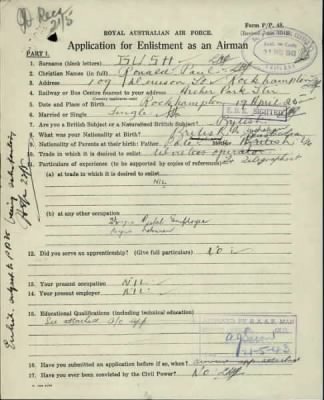 ROYAL AUSTRALIAN AIR FORCE.
Form P/P. 48.
Application for Enlistment as an Airman
PART 1.
1. Surname (block letters) BUSH
2. Christian Names (in full) Ronald Paul
3. Address 109 Denison St Rockhampton
4. Railway or Bus Centre nearest to your address Archer Park Stn
5. Date and Place of Birth Rockhampton 19 April
6. Married or Single Single
7. Are you a British Subject or a Naturalised British Subject? British
8. What was your Nationality at Birth? British
9. Nationality of Parents at their birth: Father British
10. Trade in which it is desired to enlist Wireless operator
11. Particulars of experience (to be supported by copies of references) Telegraphist
(a) at trade in which it is desired to enlist
NIL
(b) at any other occupation
Postal Employee
12. Did you serve an apprenticeship? (Give full particulars) NO
13. Your present occupation NIL
14. Your present employer NIL
15. Educational Qualifications (including technical education)
See attached a/c app
16. Have you submitted an application before if so, when?
17. Have you ever been convicted by the Civil Power? NO